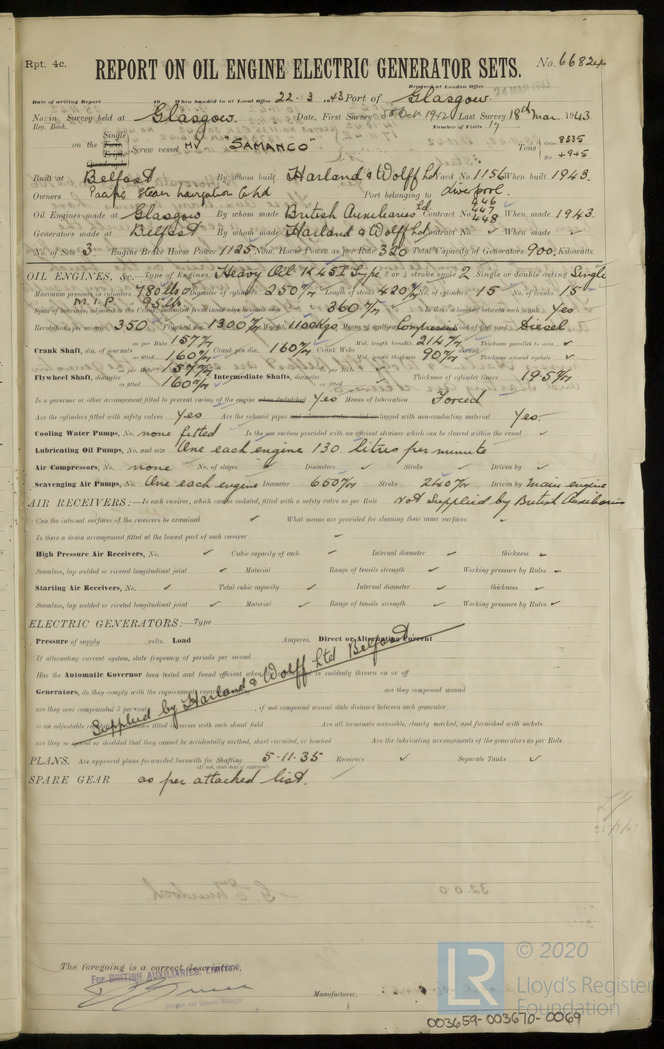 Rpt. 4c.
REPORT ON OIL ENGINE ELECTRIC GENERATOR SETS.
No. 66824
Received at London Office
Date of writing Report 19 When handed in at Local Office 22-3 1943 Port of Glasgow.
No. in Reg. Book. Survey held at Glasgow Date, First Survey Oct 1942 Last Survey 18th Mar. 1943
Number of Visits 17
Single
on the Screw vessel MV "SAMANCO" Tons Gross 8335
Net 4945
Built at Belfast By whom built Harland & Wolff Ltd Yard No. 1156 When built 1943.
Owners Pacific Steam Navigation Co Ltd Port belonging to Liverpool.
Oil Engines made at Glasgow By whom made British Auxiliaries Ld Contract No. 446 447 448 When made 1943
Generators made at Belfast By whom made Harland & Wolff Ltd Contract No. ✓ When made ✓
No. of Sets 3. Engine Brake Horse Power 1125 Nom. Horse Power as per Rule 320 Total Capacity of Generators 900. Kilowatts.
OIL ENGINES, &c. Type of Engines Heavy Oil 1K45I Type 2 or 4 stroke cycle 2 Single or double acting Single
Maximum pressure in cylinders 780 lbs Diameter of cylinders 250 m/m Length of stroke 420 m/m No. of cylinders 15 No. of cranks 15
M.I.P. 95 lbs
360 m/m Is there a bearing between each crank Yes
Revolutions per minute 350 Flywheel dia. 1300 m/m Weight 1100 kgs Means of ignition Compression Kind of fuel used Diesel
Crank Shaft, dia. of journals as per Rule 157 m/m as fitted 160 m/m Crank pin dia. 160 m/m Crank Webs Mid. length breadth 214 m/m Thickness parallel to axis ✓
Mid. length thickness 90 m/m Thickness around eyehole ✓
Flywheel Shaft, diameter as per Rule 157 m/m as fitted 160 m/m Intermediate Shafts, diameter Thickness of cylinder liners 19.5 m/m
Is a governor or other arrangement fitted to prevent racing of the engine Yes Means of lubrication Forced
Are the cylinders fitted with safety valves Yes Are the exhaust pipes lagged with non-conducting material Yes.
Cooling Water Pumps, No. none fitted Is the sea suction provided with an efficient strainer which can be cleared within the vessel ✓
Lubricating Oil Pumps, No. and size One each engine 130 litres per minute
Air Compressors, No. none No. of stages ✓ Diameters ✓ Stroke ✓ Driven by ✓
Scavenging Air Pumps, No. One each engine Diameter 650 m/m Stroke 240 m/m Driven by main engine
AIR RECEIVERS:—Is each receiver, which can be isolated, fitted with a safety valve as per Rule Not supplied by British Auxiliaries
Can the internal surfaces of the receivers be examined ✓ What means are provided for cleaning their inner surfaces ✓
Is there a drain arrangement fitted at the lowest part of each receiver ✓
High Pressure Air Receivers, No. ✓ Cubic capacity of each ✓ Internal diameter ✓ thickness ✓
Seamless, lap welded or riveted longitudinal joint ✓ Material ✓ Range of tensile strength ✓ Working pressure by Rules ✓
Starting Air Receivers, No. ✓ Total cubic capacity ✓ Internal diameter ✓ thickness ✓
Seamless, lap welded or riveted longitudinal joint ✓ Material ✓ Range of tensile strength ✓ Working pressure by Rules ✓
ELECTRIC GENERATORS:—Type
Pressure of supply volts. Load Amperes. Direct or Alternating Current
If alternating current system, state frequency of periods per second
Has the Automatic Governor been tested and found efficient when is suddenly thrown on or off
Generators, do they comply with the requirements are they compound wound
are they over compounded 5 per cent. , if not compound wound state distance between each generator
Supplied by Harland & Wolff Ltd Belfast
is an adjustable fitted in series with each shunt field Are all terminals accessible, clearly marked, and furnished with sockets
are they so spaced or shielded that they cannot be accidentally earthed, short circuited, or touched Are the lubricating arrangements of the generators as per Rule
PLANS. Are approved plans forwarded herewith for Shafting 5-11-35 Receivers ✓ Separate Tanks ✓
SPARE GEAR as per attached list.
The foregoing is a correct description,
For BRITISH AUXILIARIES, LIMITED,
Manufacturer.
LR
© 2020
Lloyd's Register
Foundation
003659-003670-0069